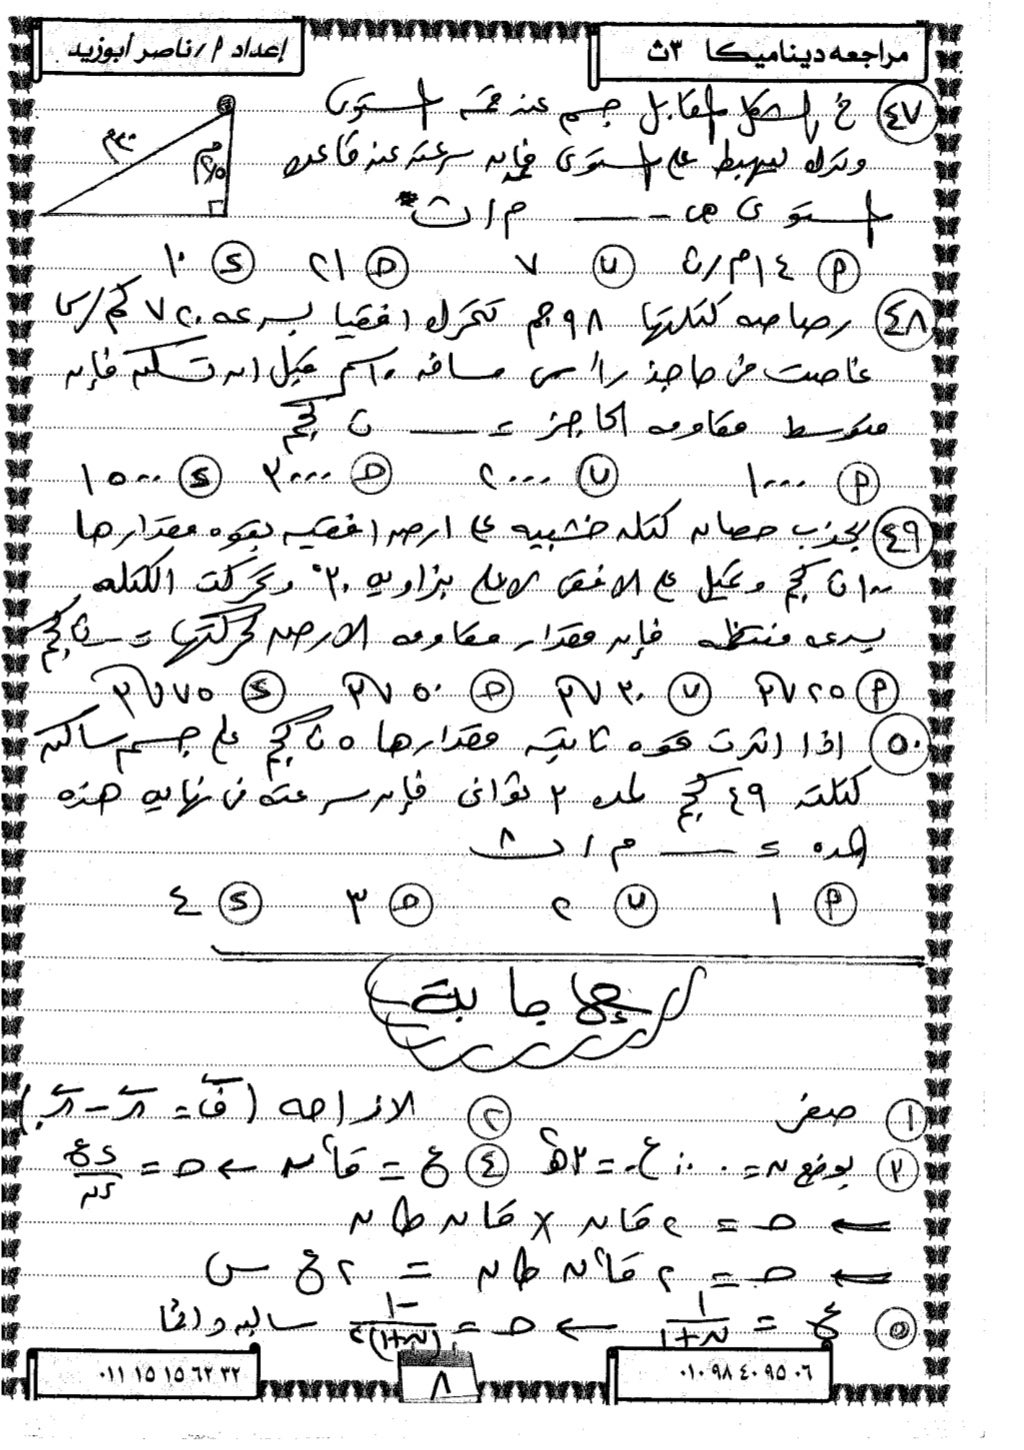 مراجعه ديناميكا ٣ث
إعداد م/ناصر أبوزيد
٤٧ في الشكل المقابل جسم عند قمة المستوى
وترك ليهبط على المستوى فإنه سرعته عند قاعدة
المستوى هى ـــ م/ث
٣٠م
٢,٥م
أ ١٤م/ث ب ٧ ح ٢١ د ١٠
٤٨ رصاصه كتلتها ٩٨جم تتحرك افقيا بسرعه ٧٢٠ كم/س
غاصت فى حاجز رأسى مسافه ١٠سم قبل ان تسكن فإن
متوسط مقاومه الحاجز = ـــ ث كجم
أ ١٠٠٠ ب ٢٠٠٠ ح ٣٠٠٠ د ١٥٠٠
٤٩ يجذب حصان كتله خشبيه على ارض افقيه بقوه مقدارها
١٠٠ ث كجم وتميل على الافقى لاعلى بزاويه ٣٠° وتحركت الكتله
بسرعه منتظمه فإن مقدار مقاومه الارض لحركتها = ـــ ث كجم
أ ٢٥√٣ ب ٣٠√٣ ح ٥٠√٣ د ٧٥√٣
٥٠ اذا اثرت قوه ثابته مقدارها ٥ ث كجم على جسم ساكن
كتلته ٤٩ كجم لمده ٣ ثوانى فإن سرعته فى نهايه هذه
المده = ـــ م/ث
أ ١ ب ٢ ح ٣ د ٤
إجابة
١ صفر ٢ الازاحه (ف = ر - ر.)
٣ بوضع ن = ٠ ∴ ع. = ٣ ٤ ع = قا²ن ← ح = دع/دن
← ح = ٢ قان × قان طان
← ح = ٢ قا²ن طان = ٢ ع س
٥ ع = ١/(ن+١) ← ح = -١/(ن+١)² سالبه دائما
٠١٠ ٩٨ ٤٠ ٩٥ ٠٦
٨
٠١١ ١٥ ١٥ ٦٢ ٣٢